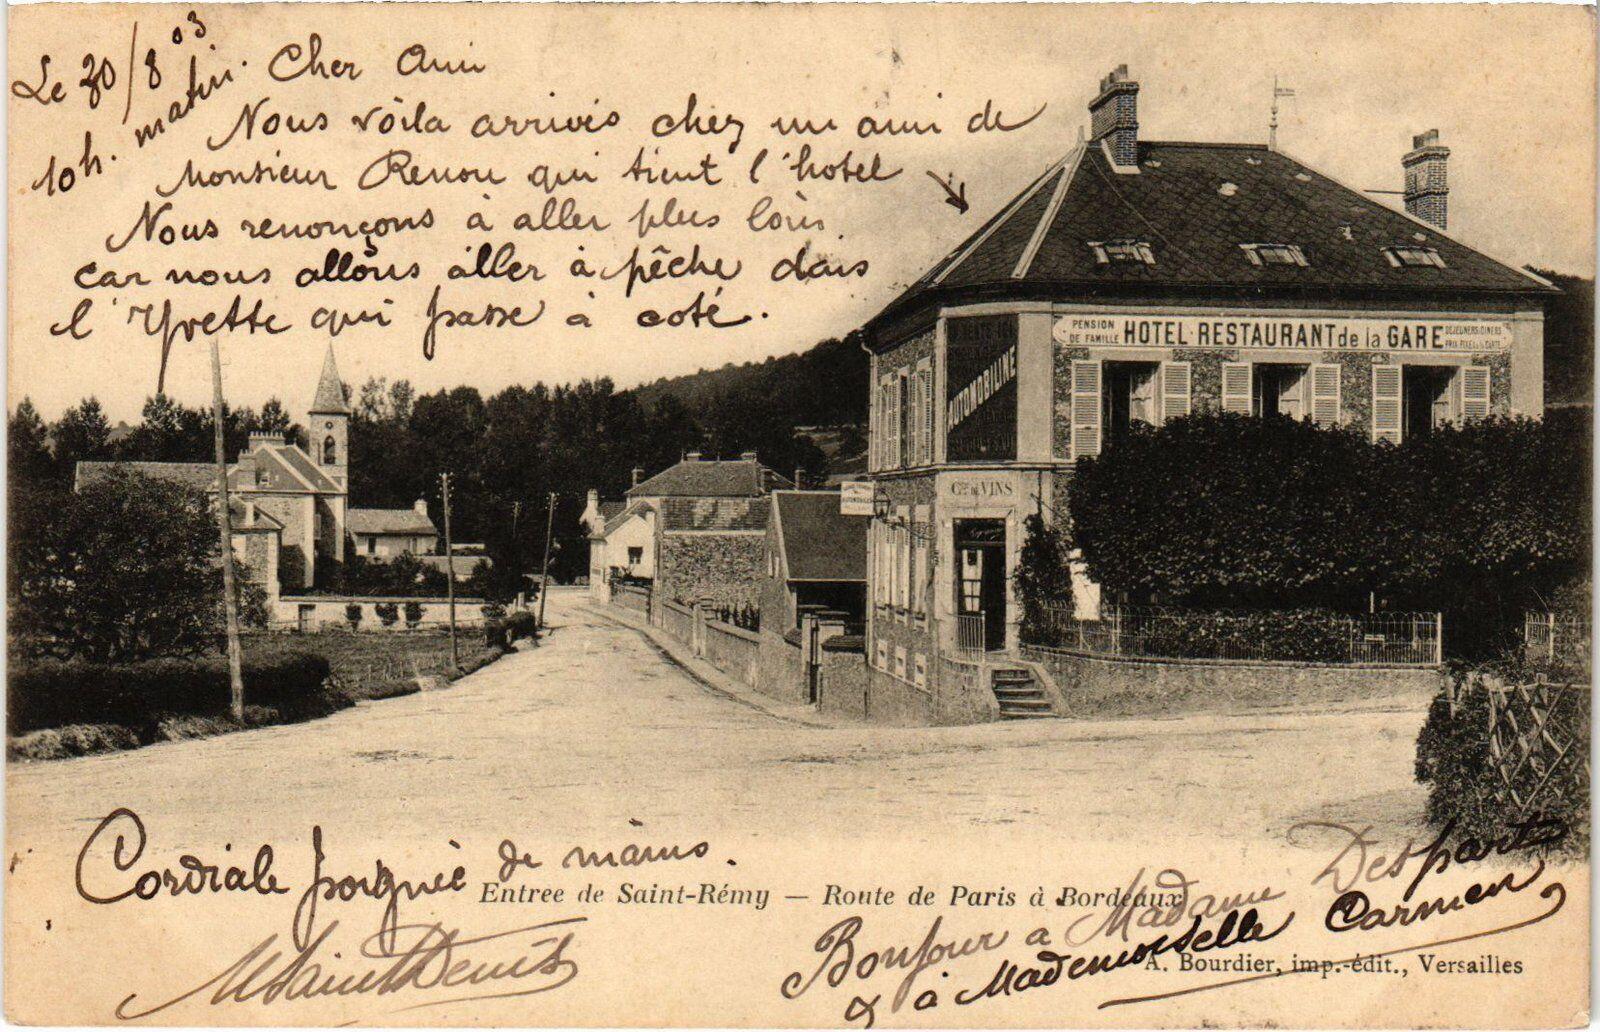 Le 30/8 03
10h. matin.
Cher Ami
Nous vòila arrivés chez un ami de
Monsieur Renou qui tient l'hotel
Nous renonçons à aller plus loin
car nous allons aller à pêche dans
l'Yvette qui passe à coté.
PENSION
DE FAMILLE
HOTEL-RESTAURANT de la GARE
DEJEUNERS-DINERS
AUTOMOBILINE
VINS
Cordiale poignée de mains.
Entree de Saint-Rémy — Route de Paris à Bordeaux
MSaintDenis
Bonjour a Madame Desparts
& à Mademoiselle Carmen
A. Bourdier, imp.-édit., Versailles